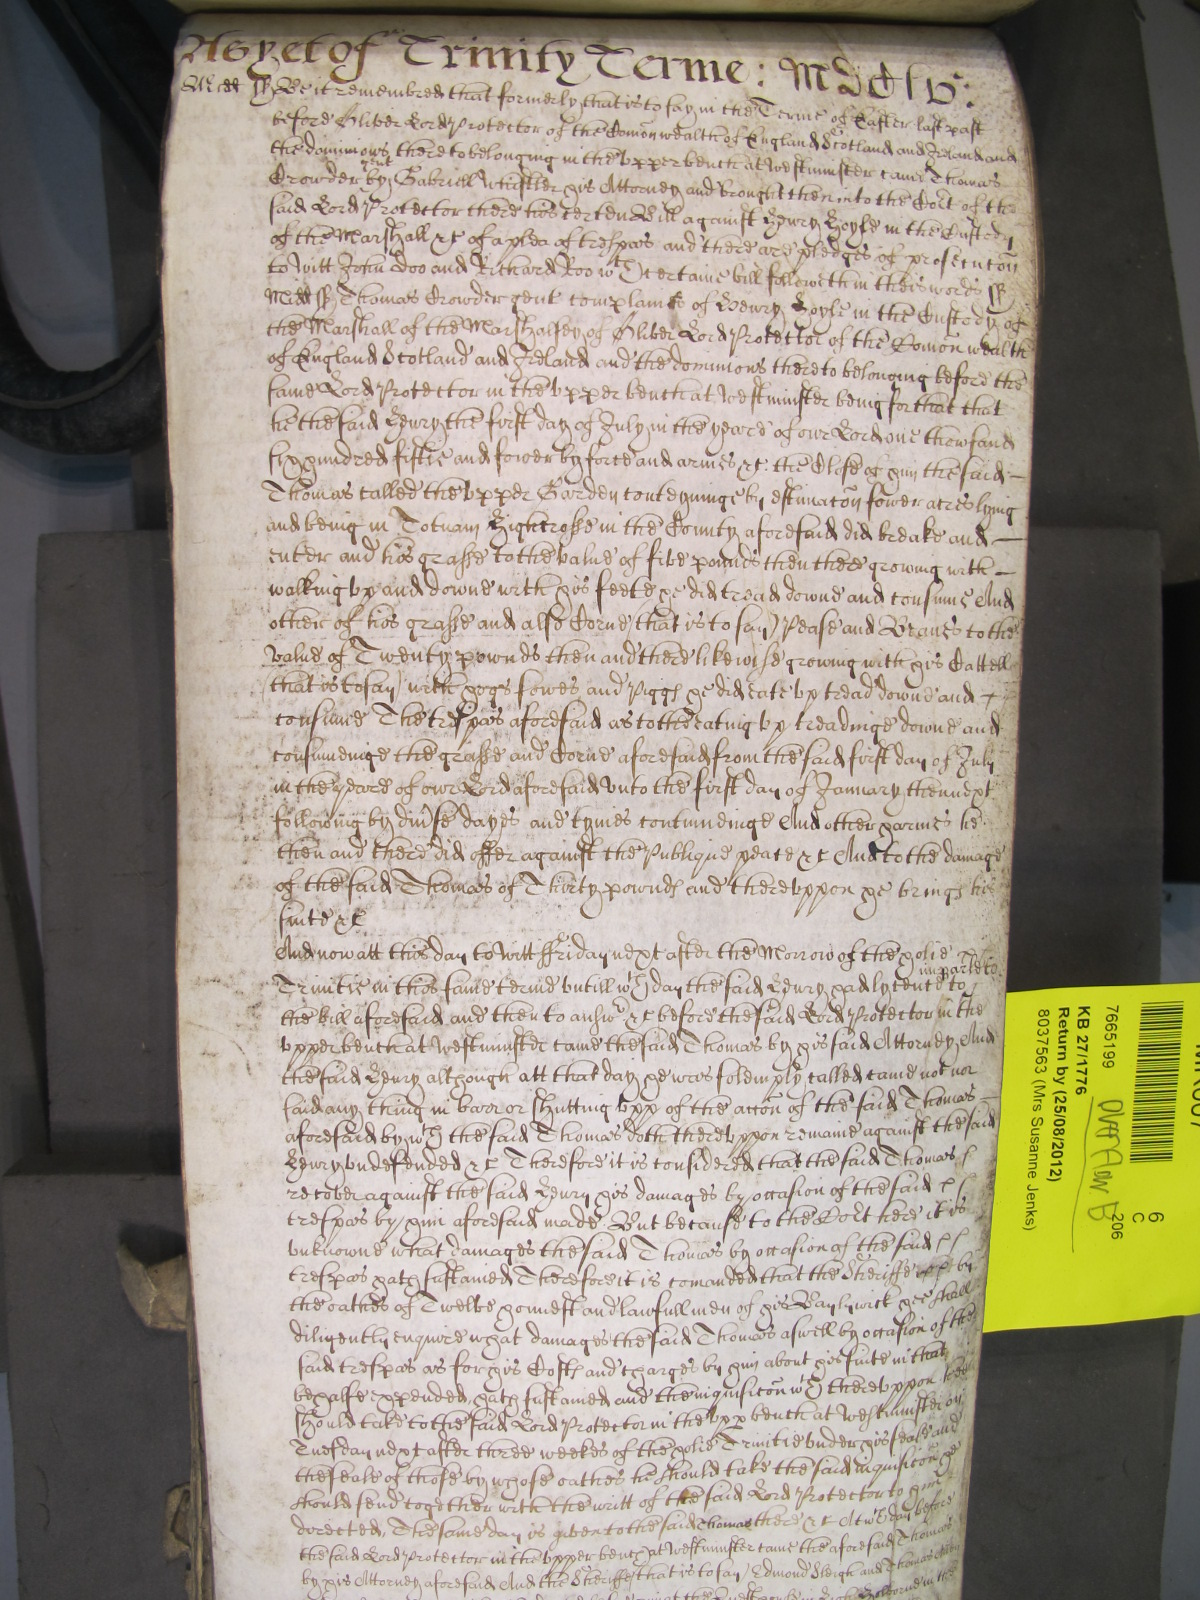 As yet of Trinity Terme: MDCLV:
Midd ss Be it remembred that formerly that is to say in the Terme of Easter last past
before Oliver Lord Protector of the Comonwealth of England Scotland and Ireland and
the dominions thereto belonging in the upper bench at Westminster came Thomas
Crowder gent by Gabriell Whistler his Attorney and brought then into the Cort of the
said Lord Protector there his certen Bill against Henry Hoyle in the Custody
of the Marshall &c of a plea of trespas and there are pledges of prosecucon
to witt John Doo and Richard Roo wch certaine bill followeth in theis words ss
Midd ss Thomas Crowder gent complaines of Henry Hoyle in the Custody of
the Marshall of the Marshalsey of Oliver Lord Protector of the Comon wealth
of England Scotland and Ireland and the dominions thereto belonging before the
same Lord Protector in the upper bench at Westminster being for that that
he the said Henry the first day of July in the yeare of our Lord one thowsand
six hundred fiftie and fower by force and armes &c the Close of him the said
Thomas called the upper Garden conteyninge by estimacon fower acres lying
and being in Totnam Highcrosse in the County aforesaid did breake and
enter and his grasse to the value of five pounds then there growing with
walking up and downe with his feete he did tread downe and consume And
other of his grasse and also Corne that is to say Pease and Beanes to the
value of Twenty pownds then and there likewise growing with his Cattell
that is to say with hogs sowes and Piggs he did eate up tread downe and
consume The trespas aforesaid as to the eating up treadinge downe and
consumeinge the grasse and Corne aforesaid from the said first day of July
in the yeare of our Lord aforesaid unto the first day of January then next
following by diverse dayes and tymes continuinge And other harmes he
then and there did offer against the Publique peace &c And to the damage
of the said Thomas of Thirty pownds and thereuppon he brings his
suite &c
And now att this day to witt ffriday next after the Morrow of the holie
Trinitie in this same terme untill wch day the said Henry had lycence to imparle to
the bill aforesaid and then to answr &c before the said Lord Protector in the
upper bench at Westminster came the said Thomas by his said Attorney And
the said Henry although att that day he was solempnly called came not nor
said any thing in barr or shutting upp of the accon of the said Thomas
aforesaid by wch the said Thomas doth thereuppon remaine against the said
Henry undefended &c Therefore it is considered that the said Thomas
recover against the said Henry his damages by occasion of the said
trespas by him aforesaid made. But because to the Cort here it is
unknowne what damages the said Thomas by occasion of the said
trespas hath susteined Therefore it is comanded that the Sheriffe by
the oathes of Twelve honnest and lawfull men of his Baylywick hee shall
diligently enquire what damages the said Thomas aswell by occasion of the
said trespas as for his Costs and charges by him about his suite in that
behalfe expended hath susteined and the inquisicon wch thereuppon hee
should take to the said Lord Protector in the upp bench at Westminster on
Tuesday next after three weekes of the holie Trinitie under his seale and
the seale of those by whose oathes he should take the said inquisicon he
should send together with the writt of the said Lord Protector to him
directed, The same day is given to the said Thomas there &c At wch day before
the said Lord Protector in the upper bench at Westminster came the aforesaid Thomas
by his Attorney aforesaid And the Sheriffe that is to say Edmond Sleigh and Thomas
7665199
KB 27/1776
Return by (25/08/2012)
8037563 (Mrs Susanne Jenks)
206
6
C